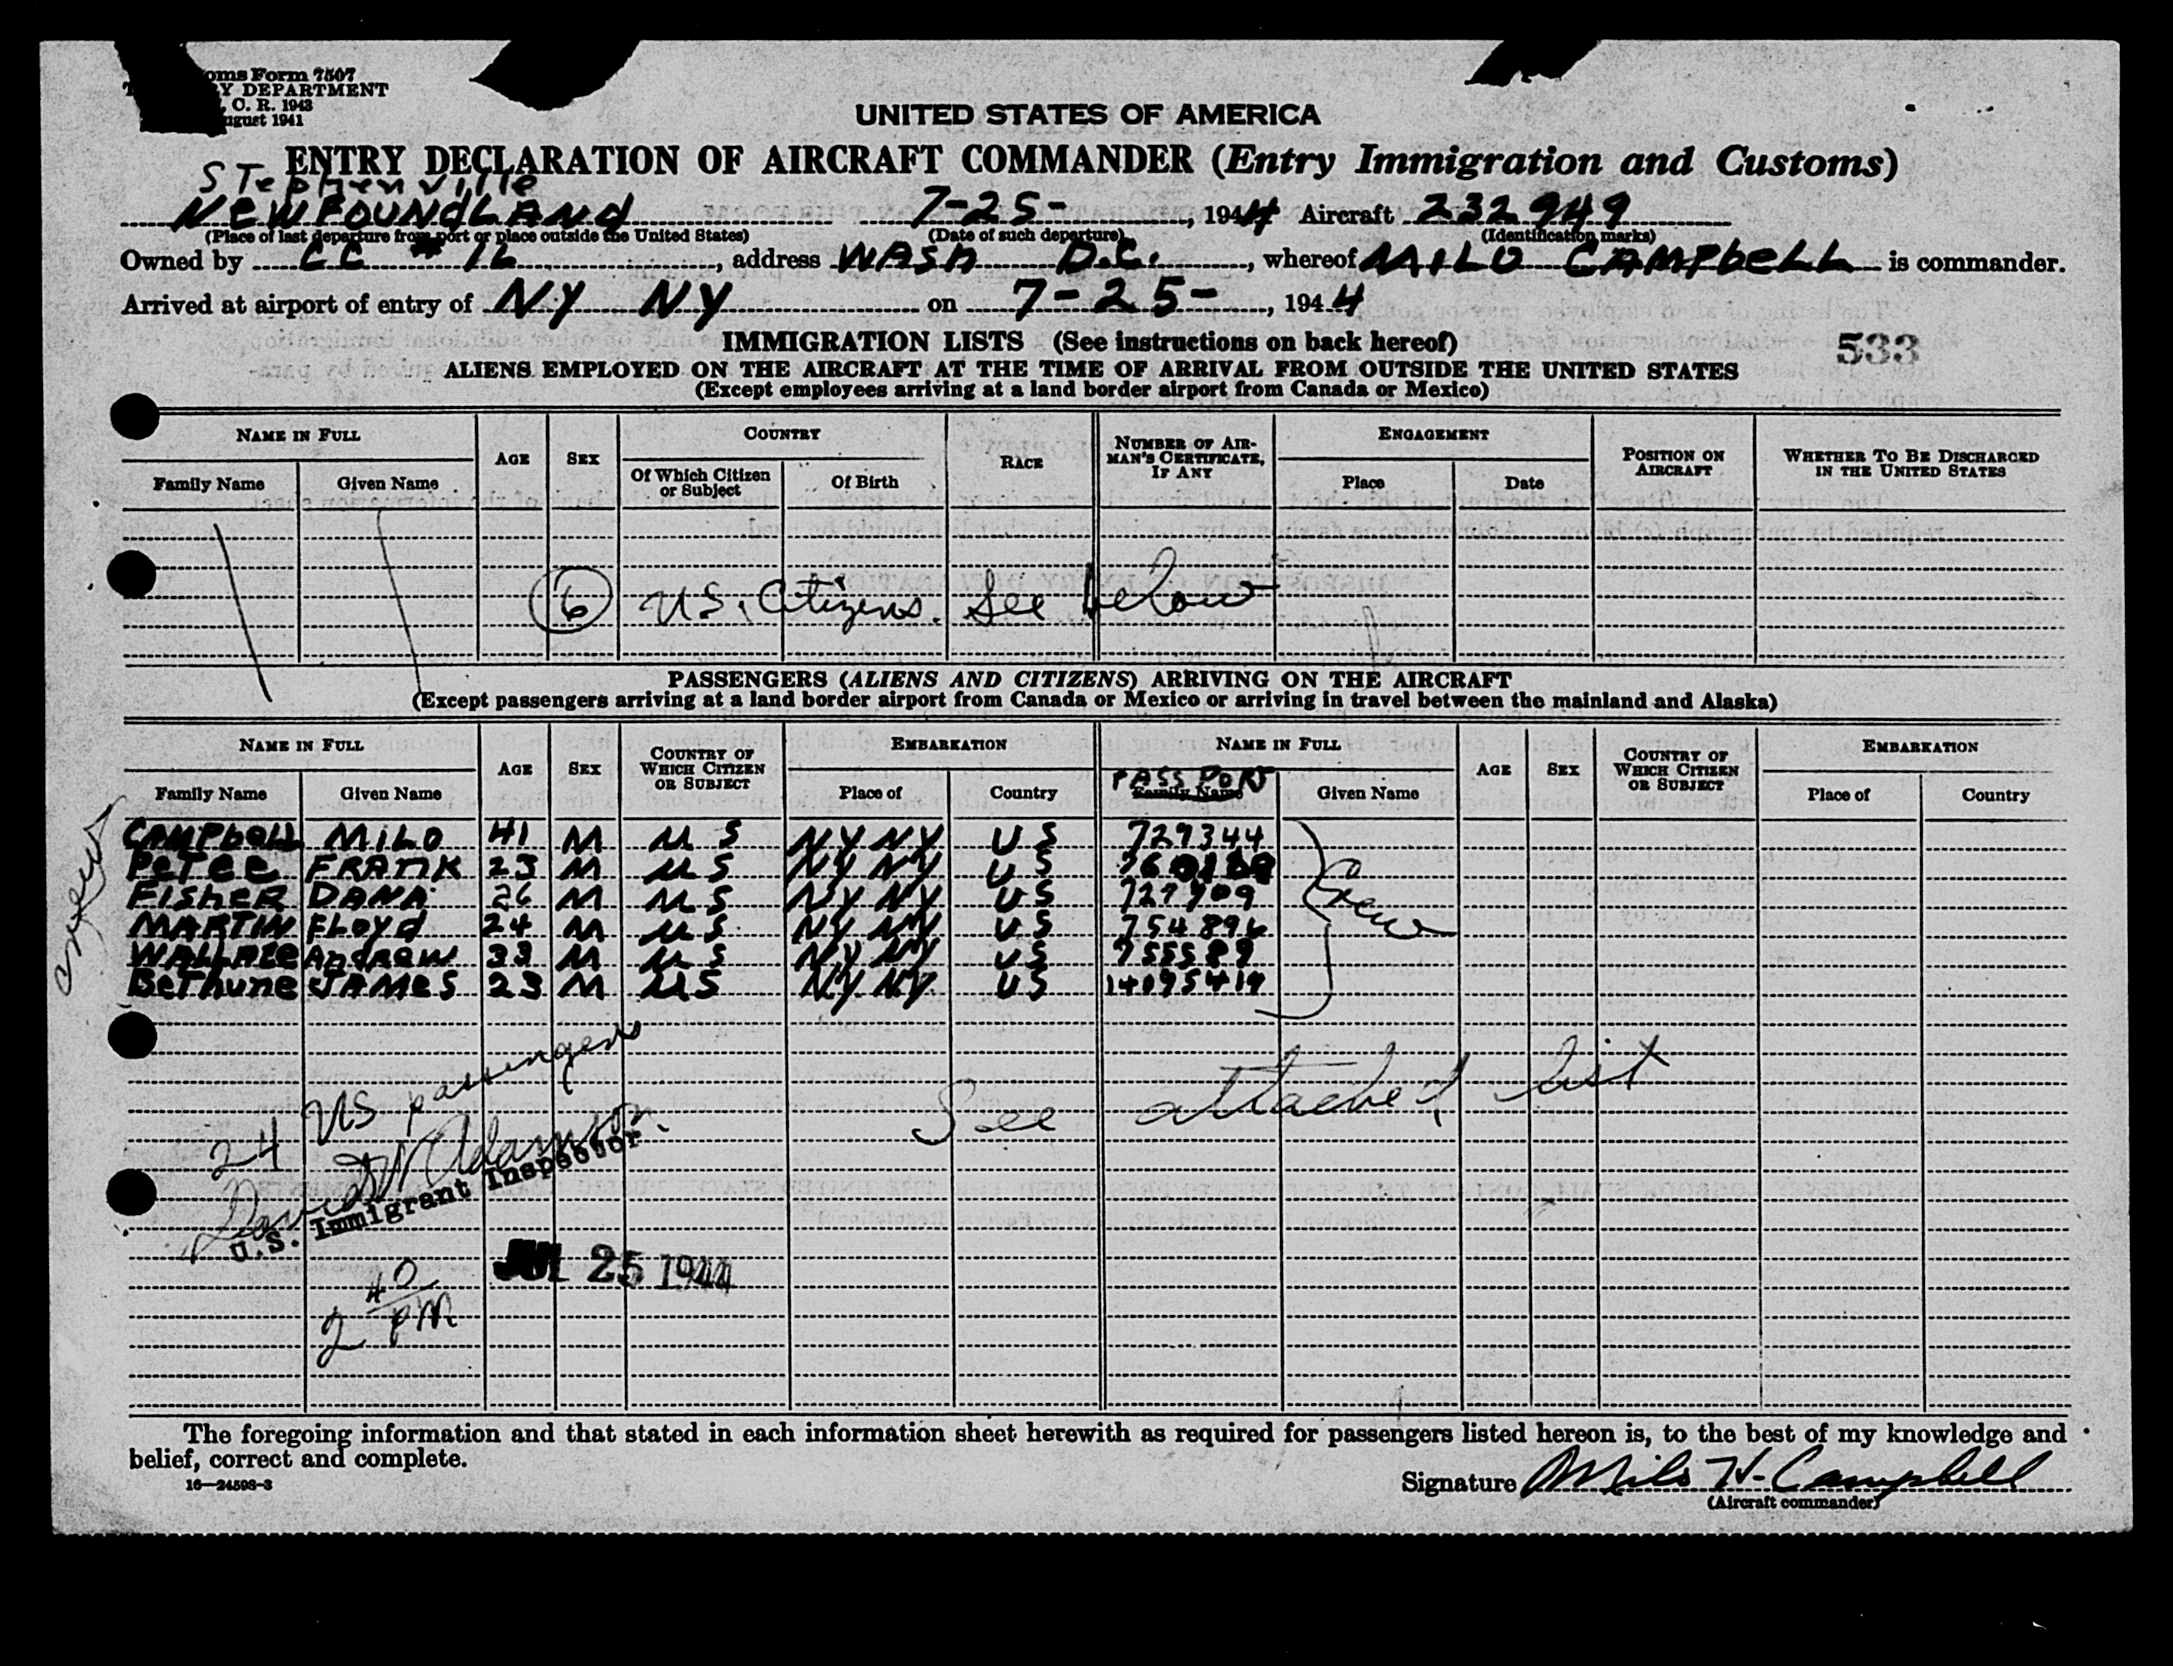 oms Form 7507
Y DEPARTMENT
C. R. 1943
ugust 1941
UNITED STATES OF AMERICA
ENTRY DECLARATION OF AIRCRAFT COMMANDER (Entry Immigration and Customs)
STephenville
NEWFOUNdLANd 7-25-, 1944 Aircraft 232949
(Place of last departure from port or place outside the United States) (Date of such departure) (Identification marks)
Owned by CC #16, address WASh D.C., whereof MILO CAMPbeLL is commander.
Arrived at airport of entry of NY NY on 7-25-, 1944
IMMIGRATION LISTS (See instructions on back hereof)
533
ALIENS EMPLOYED ON THE AIRCRAFT AT THE TIME OF ARRIVAL FROM OUTSIDE THE UNITED STATES
(Except employees arriving at a land border airport from Canada or Mexico)
NAME IN FULL AGE SEX COUNTRY RACE NUMBER OF AIRMAN'S CERTIFICATE, IF ANY ENGAGEMENT POSITION ON AIRCRAFT WHETHER TO BE DISCHARGED IN THE UNITED STATES
Family Name Given Name Of Which Citizen or Subject Of Birth Place Date
6 US. Citizens. See below
PASSENGERS (ALIENS AND CITIZENS) ARRIVING ON THE AIRCRAFT
(Except passengers arriving at a land border airport from Canada or Mexico or arriving in travel between the mainland and Alaska)
NAME IN FULL AGE SEX COUNTRY OF WHICH CITIZEN OR SUBJECT EMBARKATION NAME IN FULL AGE SEX COUNTRY OF WHICH CITIZEN OR SUBJECT EMBARKATION
PASS PORT
Family Name Given Name Place of Country Family Name Given Name Place of Country
CAMPbeLL MILO 41 M US NY NY US 729344
PeTee FRANK 23 M US NY NY US
FISheR DANA 26 M US NY NY US 727909
MARTIN FLoyd 24 M US NY NY US 754896
WALLACe AndRew 33 M US NY NY US 755589
BeThune JAMeS 23 M US NY NY US 14095419
Crew
crew
24 US passengers
See attached list
David W Adamson
U.S. Immigrant Inspector
JUL 25 1944
2 40 PM
The foregoing information and that stated in each information sheet herewith as required for passengers listed hereon is, to the best of my knowledge and
belief, correct and complete.
16—24598-3
Signature Milo H. Campbell
(Aircraft commander)